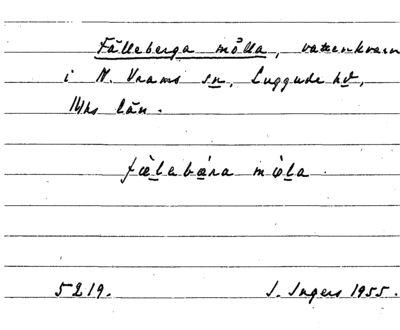 Fälleberga mölla, vattenkvarn
i N. Vrams sn, Luggude hd,
Mhs län.
fæ̀lebæ̀ra mö̀la.
5219. I. Ingers 1955.